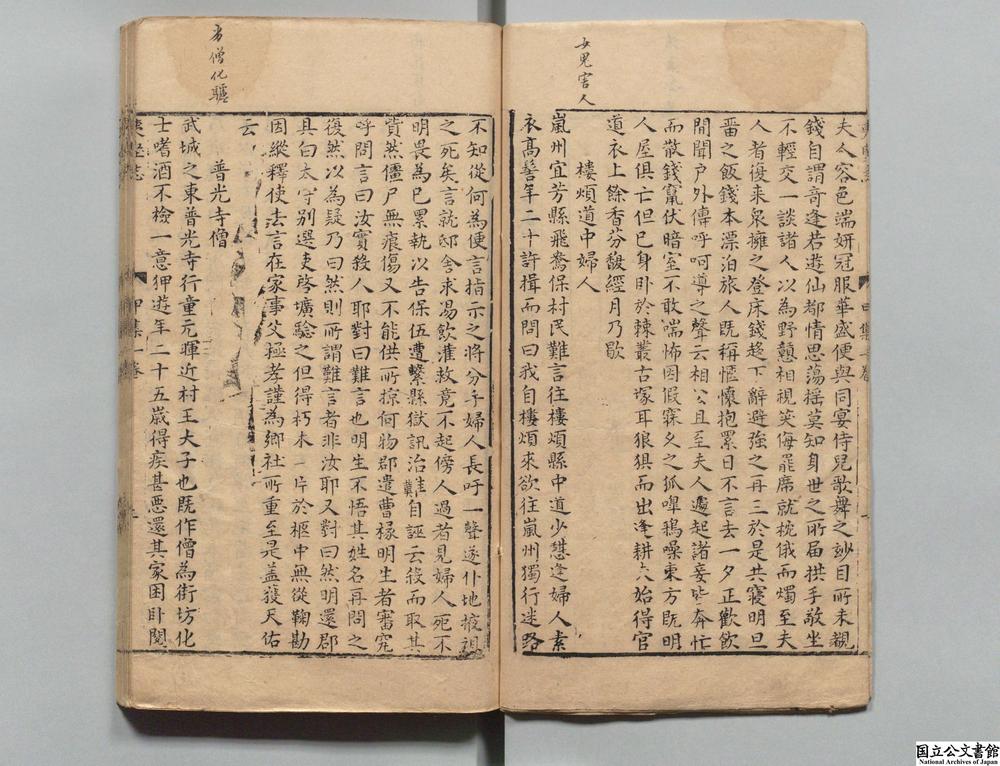 女鬼害人
夫人容色端妍冠服華盛便與同宴侍兒歌舞之妙目所未覩
錢自謂奇逢若遊仙都情思蕩搖莫知身世之所届拱手敬坐
不輕交一談諸人以為野戇相視笑侮罷席就枕俄而燭至夫
人者復來衆擁之登床錢趍下辭避強之再三於是共寢明旦
畱之飯錢本漂泊旅人既稱愜懷抱累日不言去一夕正歡飲
間聞戶外傳呼呵導之聲云相公且至夫人遽起諸妾皆奔忙
而散錢竄伏暗室不敢喘怖因假寐久之狐嗥鴉噪東方既明
人屋俱亡但已身卧於棘叢古塚耳狼狽而出逢耕夫始得官
道衣上餘香芬馥經月乃歇
樓煩道中婦人
嵐州宜芳縣飛鳶保村民難言往樓煩縣中道少憇逢婦人素
衣高髻年二十許揖而問曰我自樓煩來欲往嵐州獨行迷路
劣僧化驢
不知從何為便言指示之將分手婦人長吁一聲遂仆地掖視
之死矣言就邸舍求湯飲灌救竟不起傍人過者見婦人死不
明畏為已累執以告保伍遭繫縣獄訊治難自誣云殺而取其
貲然僵尸無痕傷又不能供所掠何物郡遣曹椽明生者審究
呼問言曰汝實殺人耶對曰難言也明生不悟其姓名再問之
復然以為疑乃曰然則所謂難言者非汝耶又對曰然明還郡
具白太守別選吏啓壙驗之但得朽木一片於柩中無從鞠勘
因縱釋使去言在家事父極孝謹為鄉社所重至是蓋獲天佑
云
普光寺僧
武城之東普光寺行童元暉近村王大子也既作僧為街坊化
士嗜酒不檢一意狎遊年二十五歲得疾甚惡還其家困卧閱
夷堅志
甲集一卷
国立公文書館
National Archives of Japan